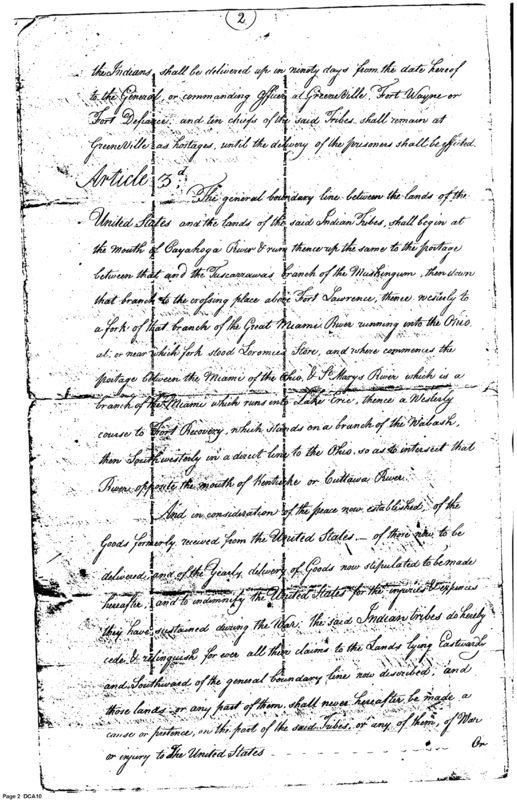 2
the Indians, shall be delivered up in ninety days from the date hereof
to the General, or commanding Officer at GreeneVille, Fort Wayne or
Fort Defiance; and ten chiefs of the said Tribes shall remain at
GreeneVille as hostages, until the delivery of the prisoners shall be effected.
Article 3d.
The general boundary line between the lands of the
United States and the lands of the said Indian Tribes, shall begin at
the mouth of Cayahoga River & run thence up the same to the portage
between that and the Tuscarrawas branch of the Muskingum, then down
that branch to the crossing place above Fort Lawrence, thence westerly to
a fork of that branch of the Great Miami River running into the Ohio
at, or near which fork stood Loromies Store, and where commences the
portage between the Miami of the Ohio, & St. Marys River which is a
branch of the Miami which runs into Lake Erie, thence a Westerly
course to Fort Recovery, which stands on a branch of the Wabash,
then Southwesterly in a direct line to the Ohio, so as to intersect that
River opposite the mouth of Kentucke or Cuttawa River.
And in consideration of the peace now established, of the
Goods formerly received from the United States, — of those now to be
delivered, and of the Yearly delivery of Goods now stipulated to be made
hereafter, and to indemnify the United States for the injuries & expences
they have sustained during the War, the said Indian tribes do hereby
cede & relinquish for ever all their claims to the Lands lying Eastwardly
and Southward of the general boundary line now described; and
those lands or any part of them, shall never hereafter be made a
cause or pretence, on the part of the said Tribes, or any of them, of War
or injury to The United States
Or
Page 2 DCA10